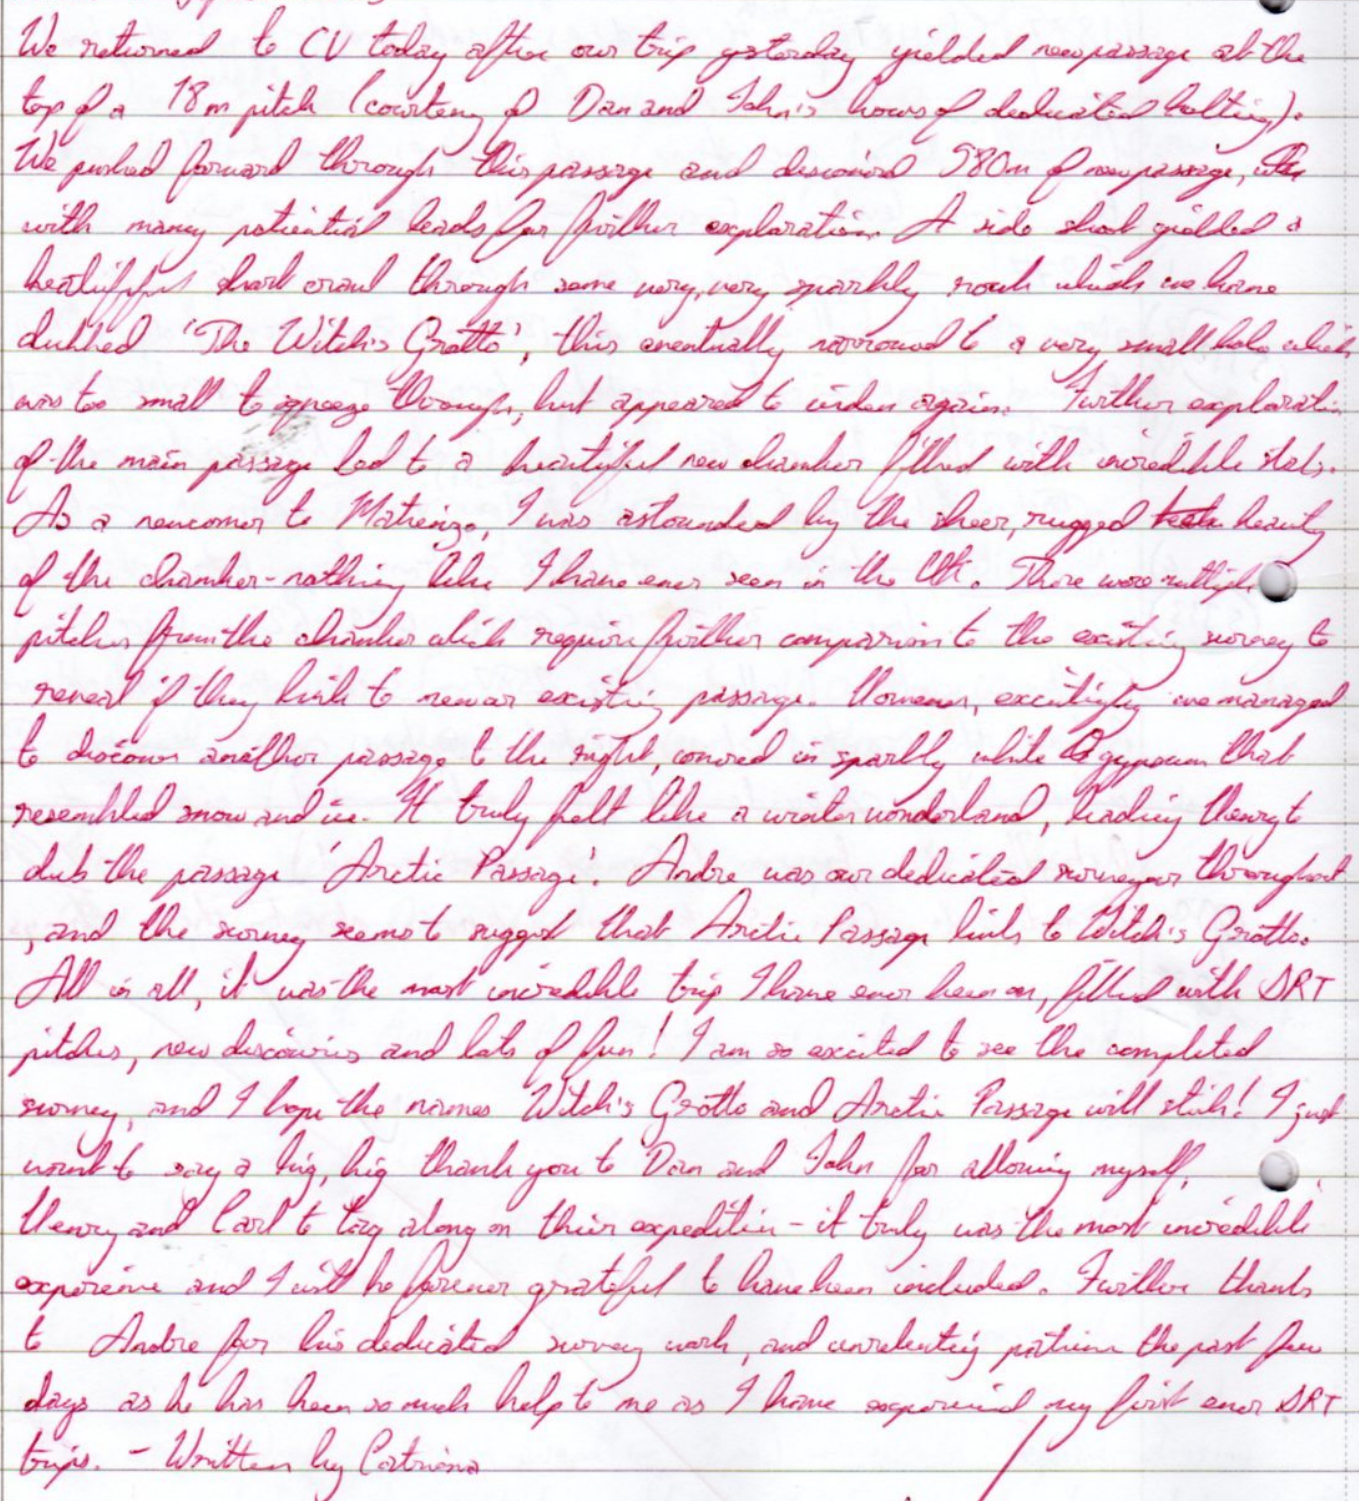 We returned to CV today after our trip yesterday yielded new passage at the
top of a 18m pitch (courtesy of Dan and John's hours of dedicated bolting).
We pushed forward through this passage and discovered 580m of new passage,
with many potiential leads for further exploration. A side shoot yielded a
beatifful short crawl through some very, very sparkly rock which we have
dubbed 'The Witch's Grotto', this eventually narrowed to a very small hole which
was too small to squeeze through, but appeared to widen again. Further exploration
of the main passage led to a beautiful new chamber filled with incredible stals.
As a newcomer to Matienzo, I was astounded by the sheer, rugged beauty
of the chamber - nothing like I have ever seen in the UK. There were multiple
pitches from the chamber which require further comparison to the existing survey to
reveal if they link to new or existing passage. However, excitingly we managed
to discover another passage to the right, covered in sparkly white gypsum that
resembled snow and ice. It truly felt like a winter wonderland, leading Henry to
dub the passage 'Arctic Passage'. Andre was our dedicated surveyor throughout
, and the survey seems to suggest that Arctic Passage links to Witch's Grotto.
All in all, it was the most incredible trip I have ever been on, filled with SRT
pitches, new discoveries and lots of fun! I am so excited to see the completed
survey, and I hope the names Witch's Grotto and Arctic Passage will stick! I just
want to say a big, big thank you to Dan and John for allowing myself,
Henry and Carl to tag along on their expedition - it truly was the most incredible
experience and I will be forever grateful to have been included. Further thanks
to Andre for his dedicated survey work, and unrelenting patience the past few
days as he has been so much help to me as I have experienced my first ever SRT
trips. - Written by Catriona